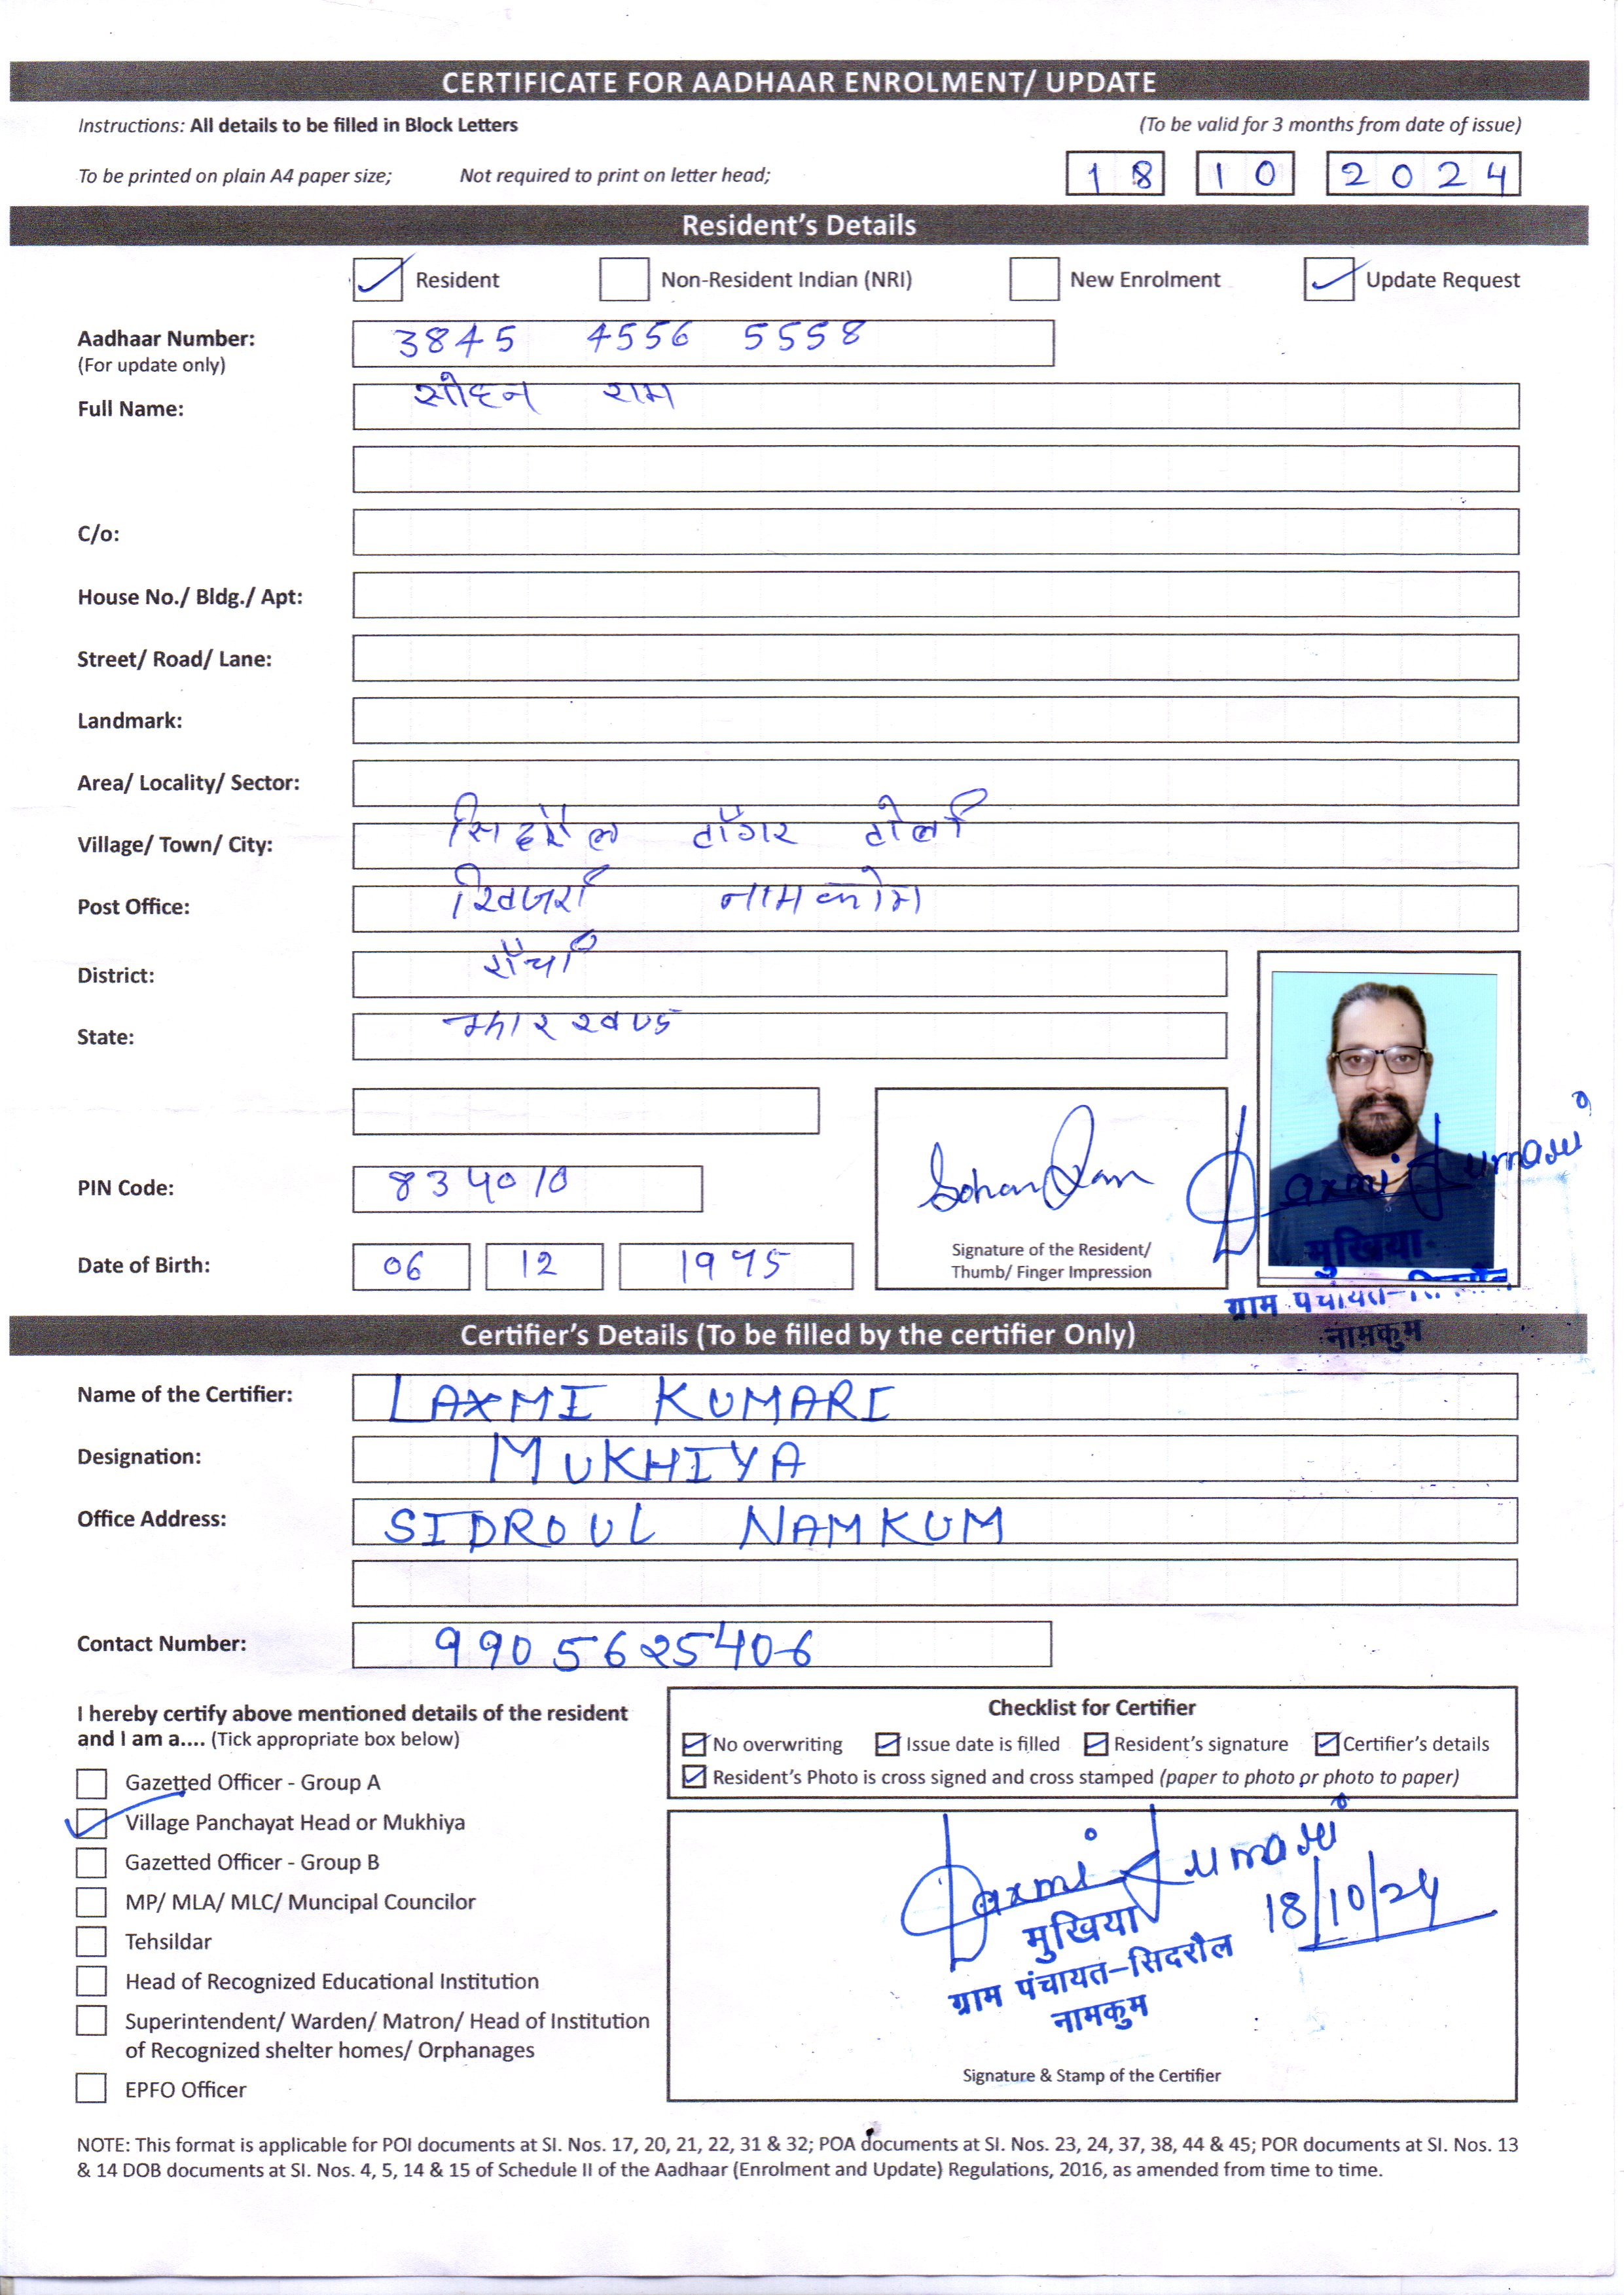 CERTIFICATE FOR AADHAAR ENROLMENT/ UPDATE
Instructions: All details to be filled in Block Letters (To be valid for 3 months from date of issue)
To be printed on plain A4 paper size; Not required to print on letter head; 18 10 2024
Resident's Details
Resident Non-Resident Indian (NRI) New Enrolment Update Request
Aadhaar Number: 3845 4556 5558
(For update only)
Full Name: सोहन राम
C/o:
House No./ Bldg./ Apt:
Street/ Road/ Lane:
Landmark:
Area/ Locality/ Sector:
Village/ Town/ City: सिदरौल टोली
Post Office: खिजरी नामकोम
District: राँची
State: झारखण्ड
PIN Code: 834010
Sohan Ram
Laxmi Kumari
मुखिया
Signature of the Resident/
Thumb/ Finger Impression
Date of Birth: 06 12 1975
ग्राम पंचायत-सिदरौल
नामकुम
Certifier's Details (To be filled by the certifier Only)
Name of the Certifier: LAXMI KUMARI
Designation: MUKHIYA
Office Address: SIDROUL NAMKUM
Contact Number: 9905625406
I hereby certify above mentioned details of the resident
and I am a.... (Tick appropriate box below)
Gazetted Officer - Group A
Village Panchayat Head or Mukhiya
Gazetted Officer - Group B
MP/ MLA/ MLC/ Muncipal Councilor
Tehsildar
Head of Recognized Educational Institution
Superintendent/ Warden/ Matron/ Head of Institution
of Recognized shelter homes/ Orphanages
EPFO Officer
Checklist for Certifier
No overwriting Issue date is filled Resident's signature Certifier's details
Resident's Photo is cross signed and cross stamped (paper to photo or photo to paper)
Laxmi Kumari
18/10/24
मुखिया
ग्राम पंचायत-सिदरौल
नामकुम
Signature & Stamp of the Certifier
NOTE: This format is applicable for POI documents at SI. Nos. 17, 20, 21, 22, 31 & 32; POA documents at SI. Nos. 23, 24, 37, 38, 44 & 45; POR documents at SI. Nos. 13
& 14 DOB documents at SI. Nos. 4, 5, 14 & 15 of Schedule II of the Aadhaar (Enrolment and Update) Regulations, 2016, as amended from time to time.